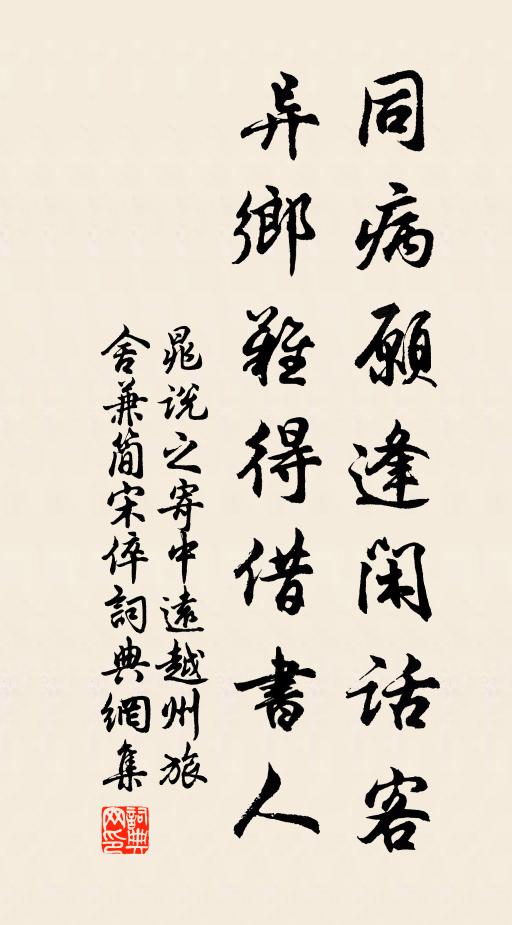 同病願逢閑話客
异鄉難得借書人
晁说之寄中遠越州旅
舍兼簡宋倅詞典網集
詞典
网印